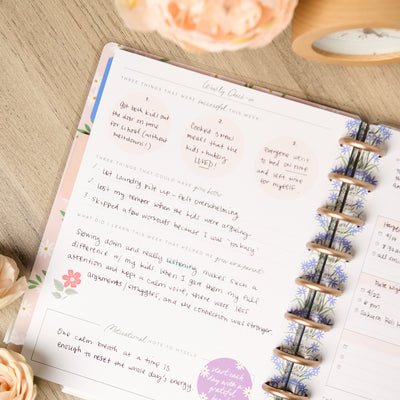 Weekly Check-in
THREE THINGS THAT WERE successful THIS WEEK
1.
Got both kids out
the door on time
for school (without
meltdowns!)
2.
Cooked 3 new
meals that the
kids + hubby
LOVED!
3.
everyone went
to bed on time
and left time
for myself!
THREE THINGS THAT COULD HAVE gone better
1. Let laundry pile up - felt overwhelming.
2. lost my temper when the kids were arguing.
3. skipped a few workouts because I was
WHAT DID I LEARN THIS WEEK THAT HELPED ME
Slowing down and really listening makes such a
difference w/ my kids. When I give them my full
attention and keep a calm voice, there were less
arguments/struggles, and the connection was stronger.
Motivational NOTE TO MYSELF
One calm breath at a time is
enough to reset the whole day's energy.
start each
day with a
grateful